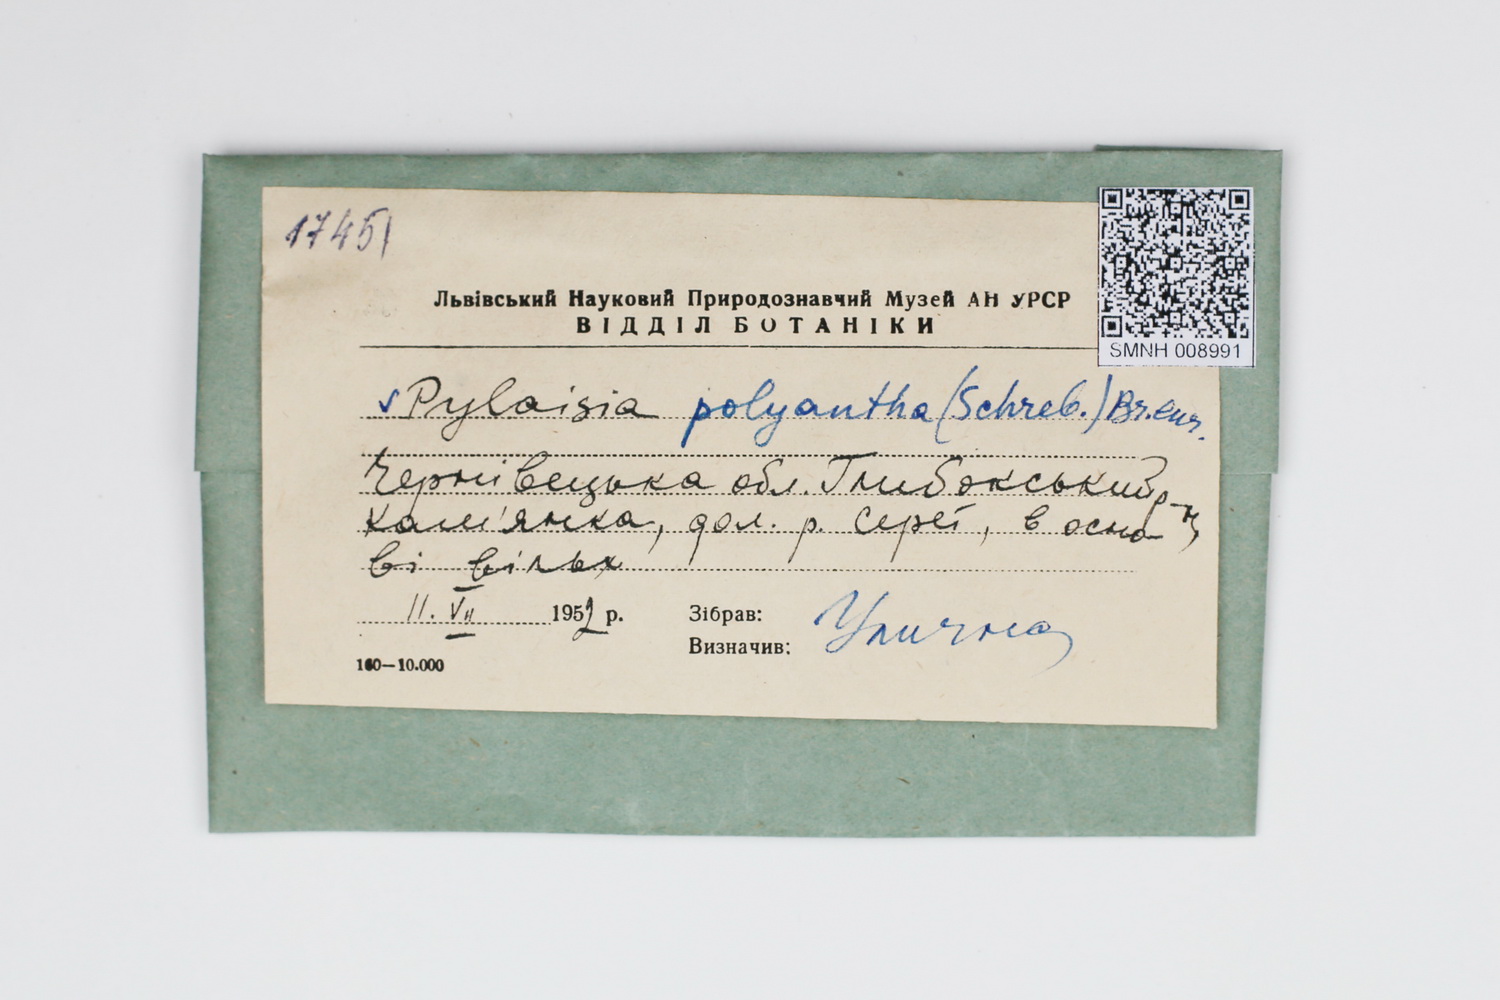 17451
Львівський Науковий Природознавчий Музей АН УРСР
ВІДДІЛ БОТАНІКИ
SMNH 008991
Pylaisia polyantha (Schreb.) Br. eur.
Чернівецька обл. Глибокський р-н,
Кам'янка, дол. р. Серет, в осно-
ві вільх
11. VII 1952 р.
Зібрав:
Визначив: Улична
160—10.000